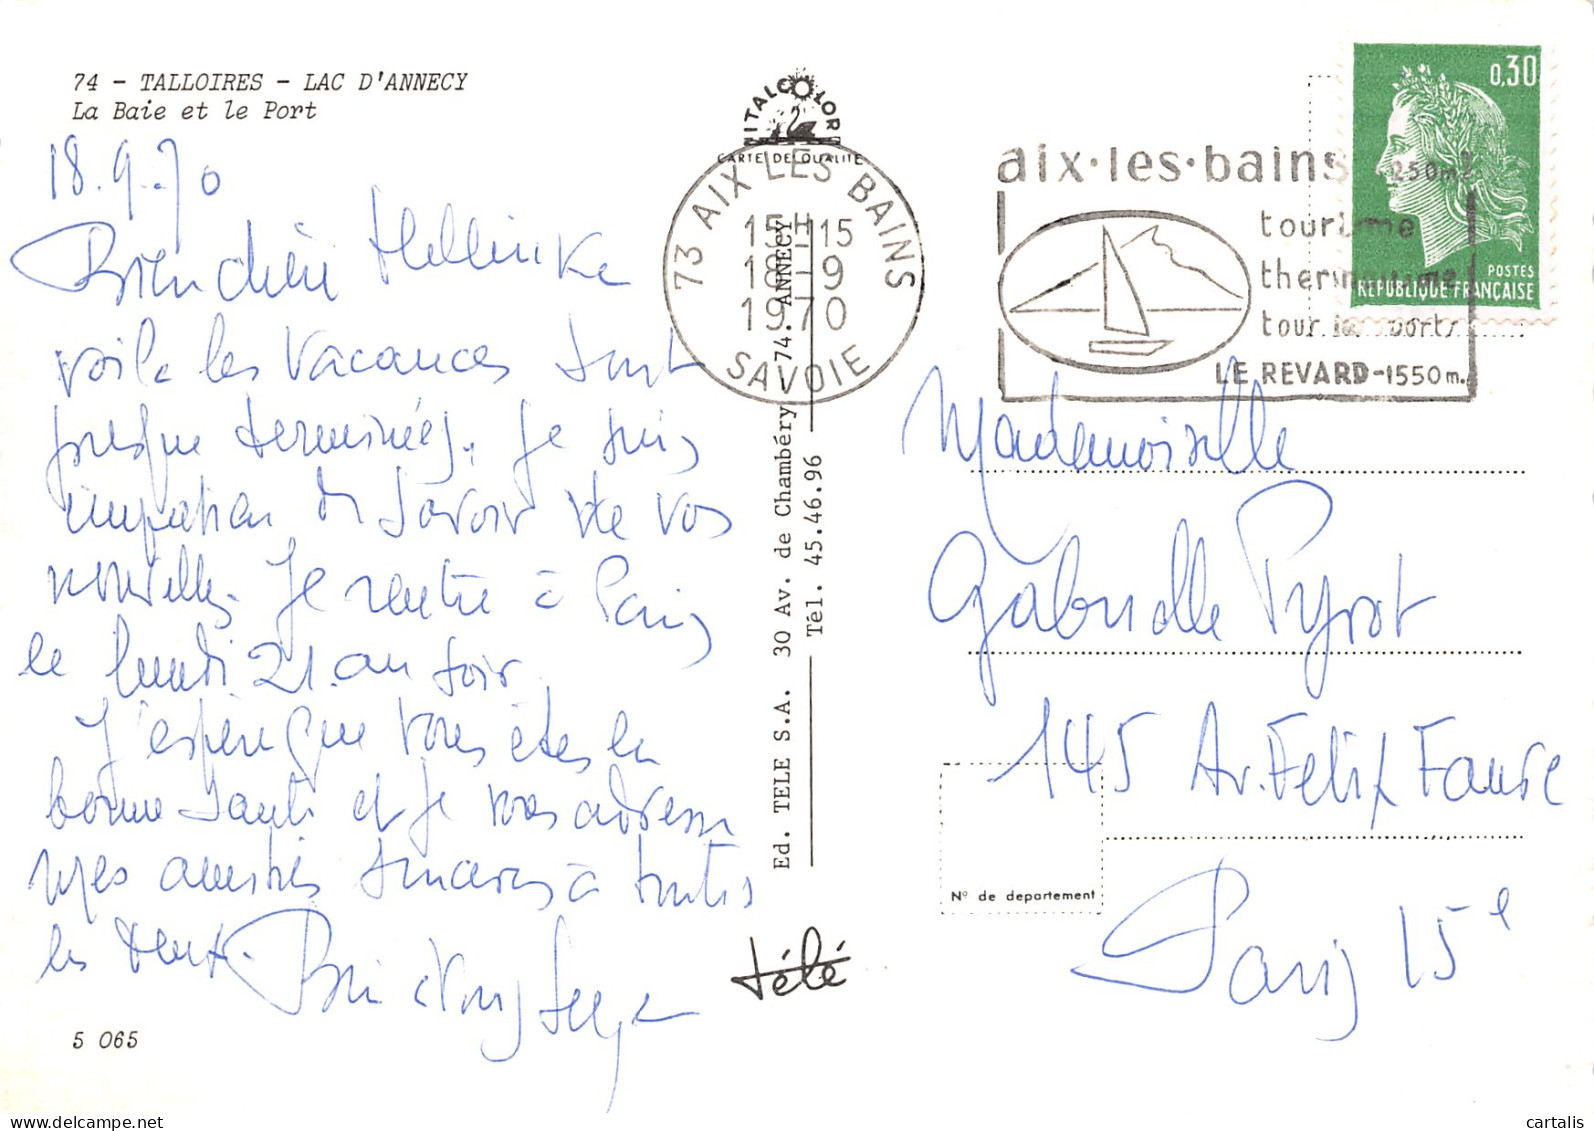 74 - TALLOIRES - LAC D'ANNECY
La Baie et le Port
18.9.70
Bien chère
voilà les vacances sont
presque terminées, je suis
impatien de savoir de vos
nouvelles. Je rentre à Paris
le lundi 21 au soir.
J'espère que vous êtes en
bonne santé et je vous adresse
mes amitiés sincères à toutes
les deux.
Bien à vous
5 065
ITALCOLOR
CARTE DE QUALITE
73 AIX LES BAINS
15H15
18-9
1970
SAVOIE
Ed. TELE S.A. 30 Av. de Chambéry 74. ANNECY
Tél. 45.46.96
télé
aix·les·bains
250m
tourisme
thermalisme
tous les sports
LE REVARD-1550m.
0,30
POSTES
REPUBLIQUE FRANÇAISE
Mademoiselle
Gabrielle Pyrot
145 Av. Félix Faure
Paris 15e
N° de departement
cartalis
delcampe.net